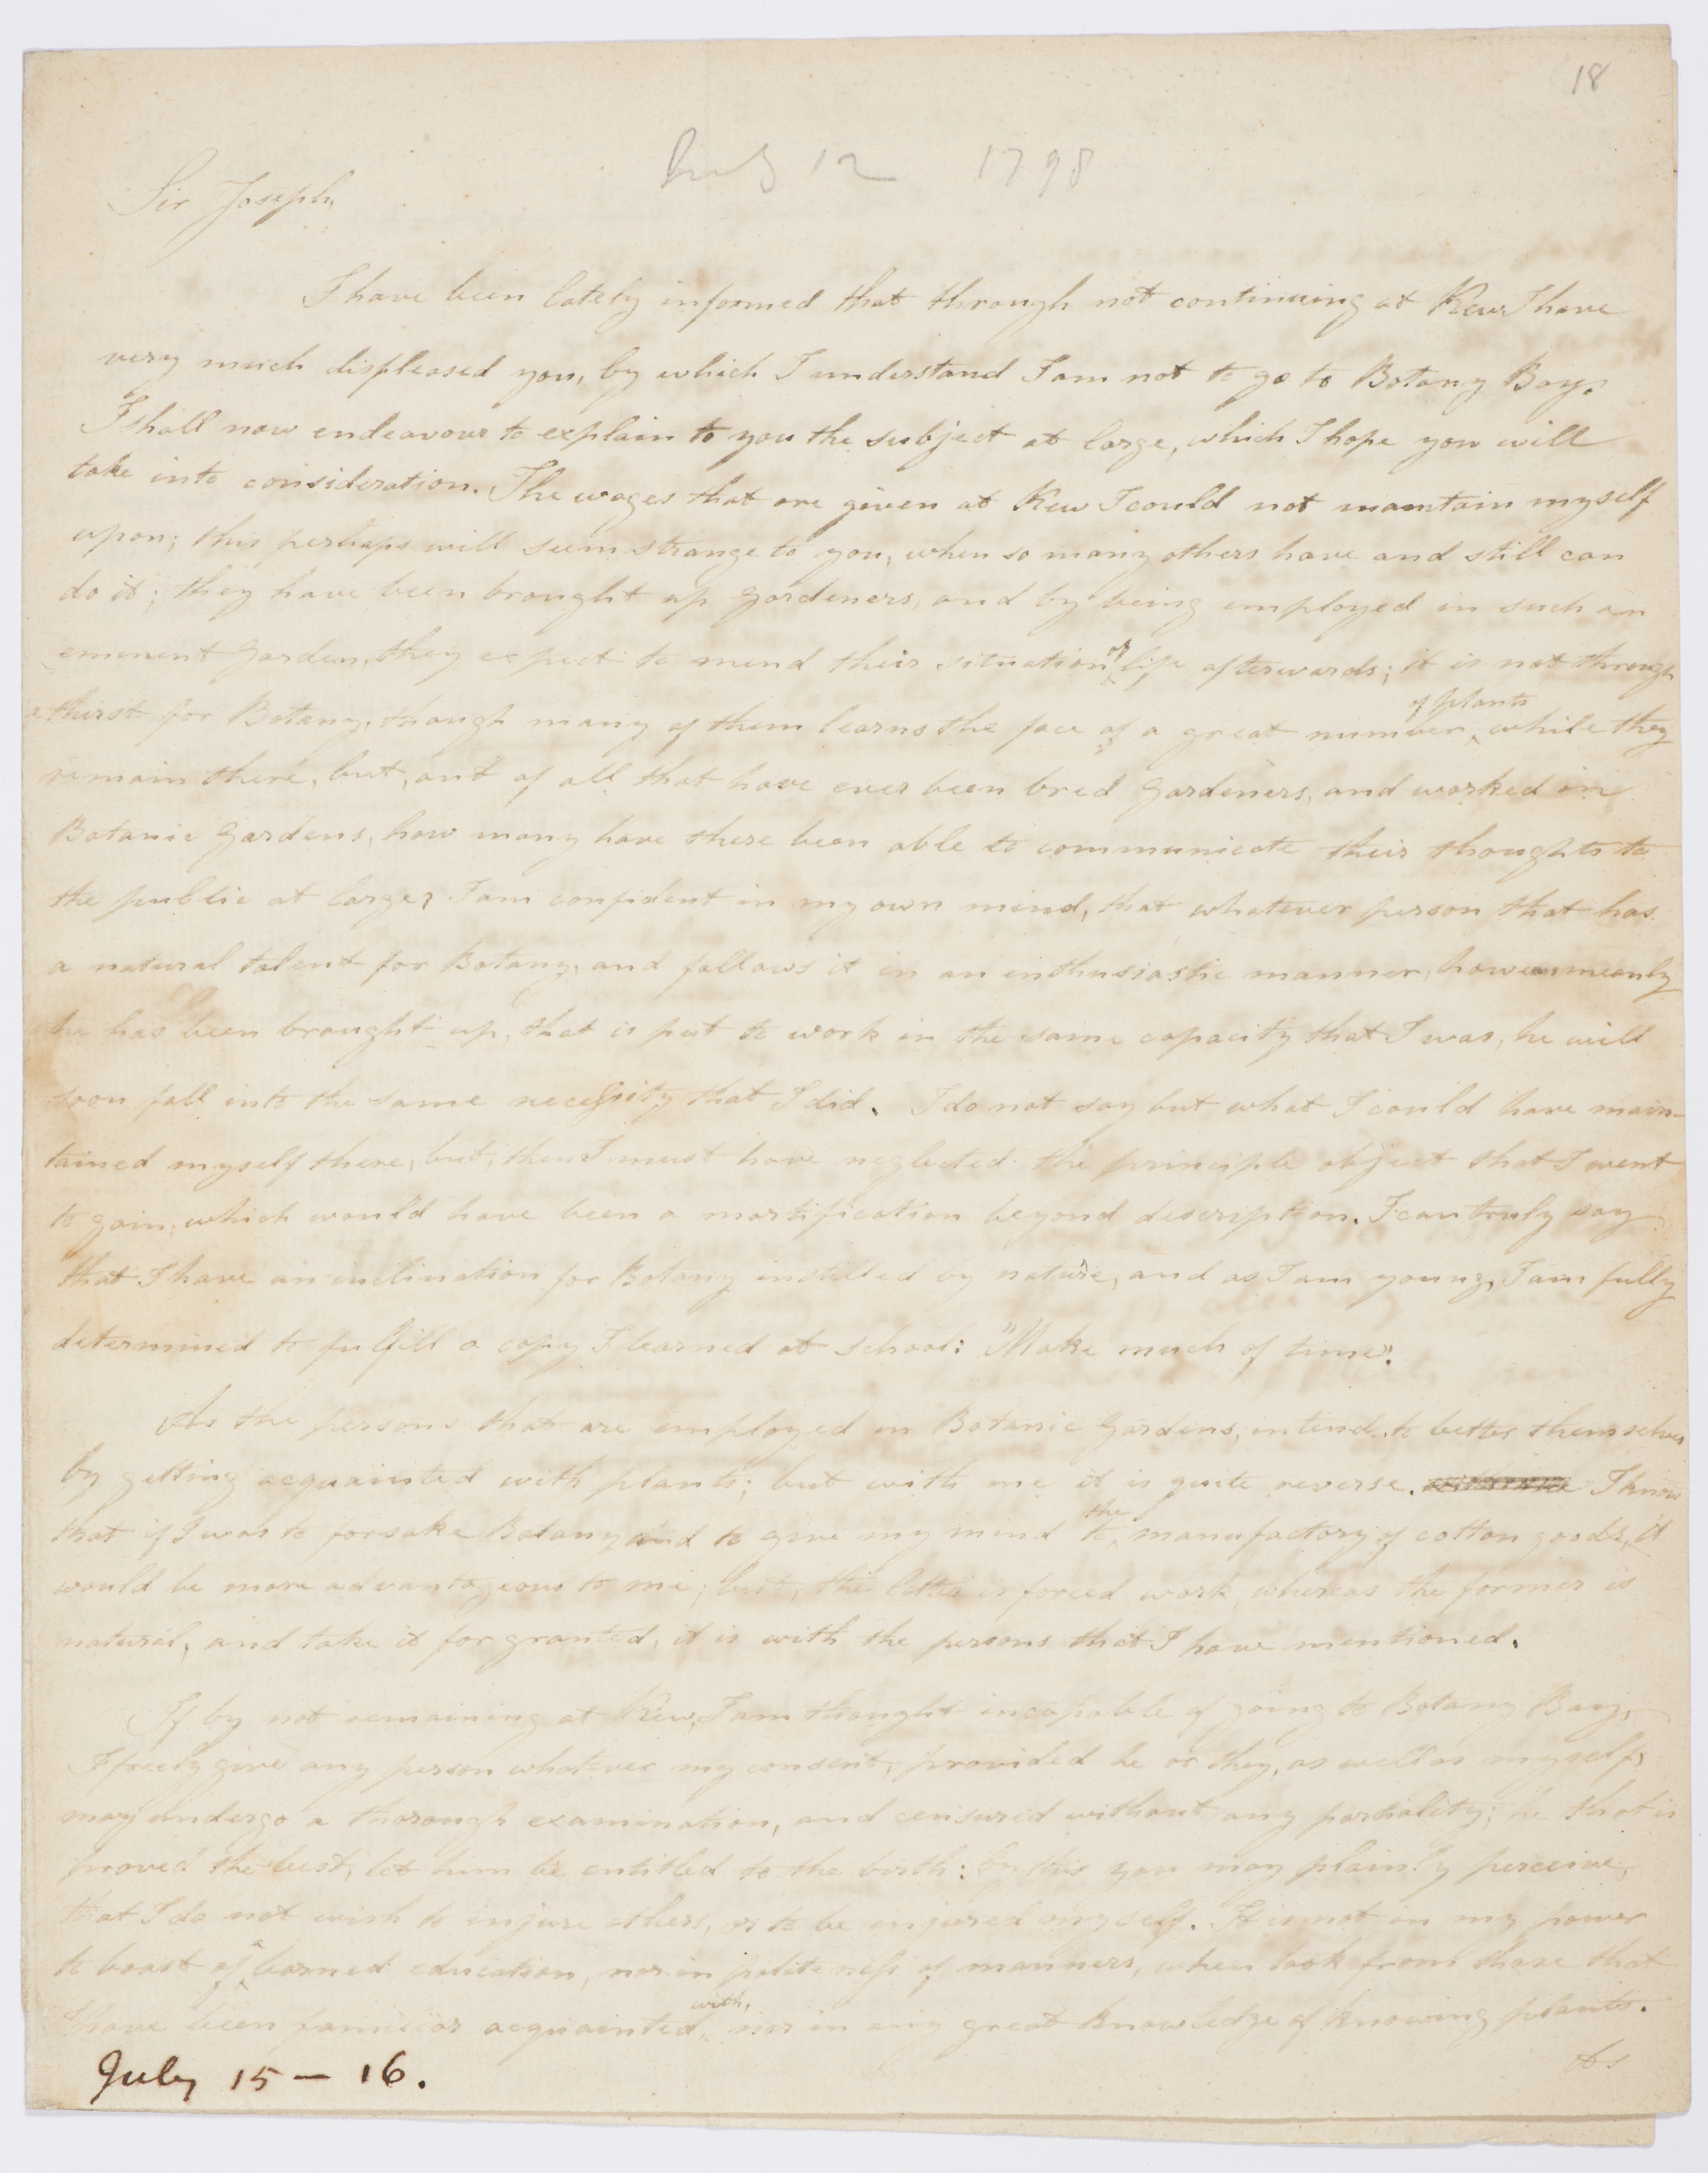 18
July 12 1798
Sir Joseph,
I have been lately informed that through not continuing at Kew I have
very much displeased you, by which I understand I am not to go to Botany Bay.
I shall now endeavour to explain to you the subject at large, which I hope you will
take into consideration. The wages that are given at Kew I could not maintain myself
upon; this perhaps will seem strange to you, when so many others have and still can
do it; they have been brought up Gardeners, and by being employed in such an
eminent Garden, they expect to mend their situation of life afterwards; it is not through
a thirst for Botany, though many of them learns the face of a great number of plants while they
remain there, but, out of all that have ever been bred Gardeners, and worked in
Botanic Gardens, how many have there been able to communicate their thoughts to
the public at large? I am confident in my own mind, that whatever person that has
a natural talent for Botany, and follows it in an enthusiastic manner, however meanly
he has been brought up, that is put to work in the same capacity that I was, he will
soon fall into the same necessity that I did. I do not say but what I could have main-
tained myself there, but, then I must have neglected the principle object that I went
to gain, which would have been a mortification beyond description. I can truly say
that I have an inclination for Botany instilled by nature, and as I am young, I am fully
determined to fulfill a copy I learned at school: "Make much of time".
As the persons that are employed in Botanic Gardens, intend to better themselves
by getting acquainted with plants; but with me it is quite reverse. I know
that if I was to forsake Botany and to give my mind to the manufactory of cotton goods, it
would be more advantageous to me; but, the latter is forced work, whereas the former is
natural, and take it for granted, it is with the persons that I have mentioned.
If by not remaining at Kew, I am thought incapable of going to Botany Bay,
I freely give any person whatever my consent, provided he or they, as well as myself,
may undergo a thorough examination, and censured without any partiality; he that is
proved the best, let him be entitled to the birth: by this you may plainly perceive,
that I do not wish to injure others, or to be injured myself. It is not in my power
to boast of a learned education, nor in politeness of manners, when took from those that
I have been familiar acquainted with, nor in any great knowledge of knowing plants.
As
July 15 – 16.